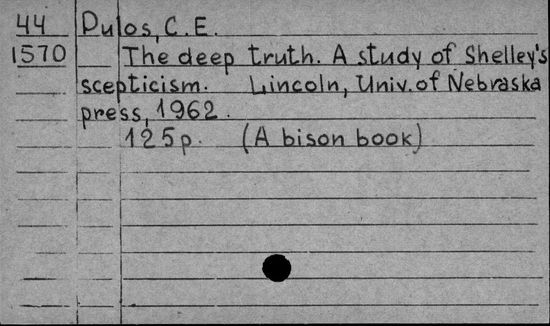 44 Pulos, C.E.
1570 The deep truth. A study of Shelley's
scepticism. Lincoln, Univ. of Nebraska
press, 1962.
125p. (A bison book)